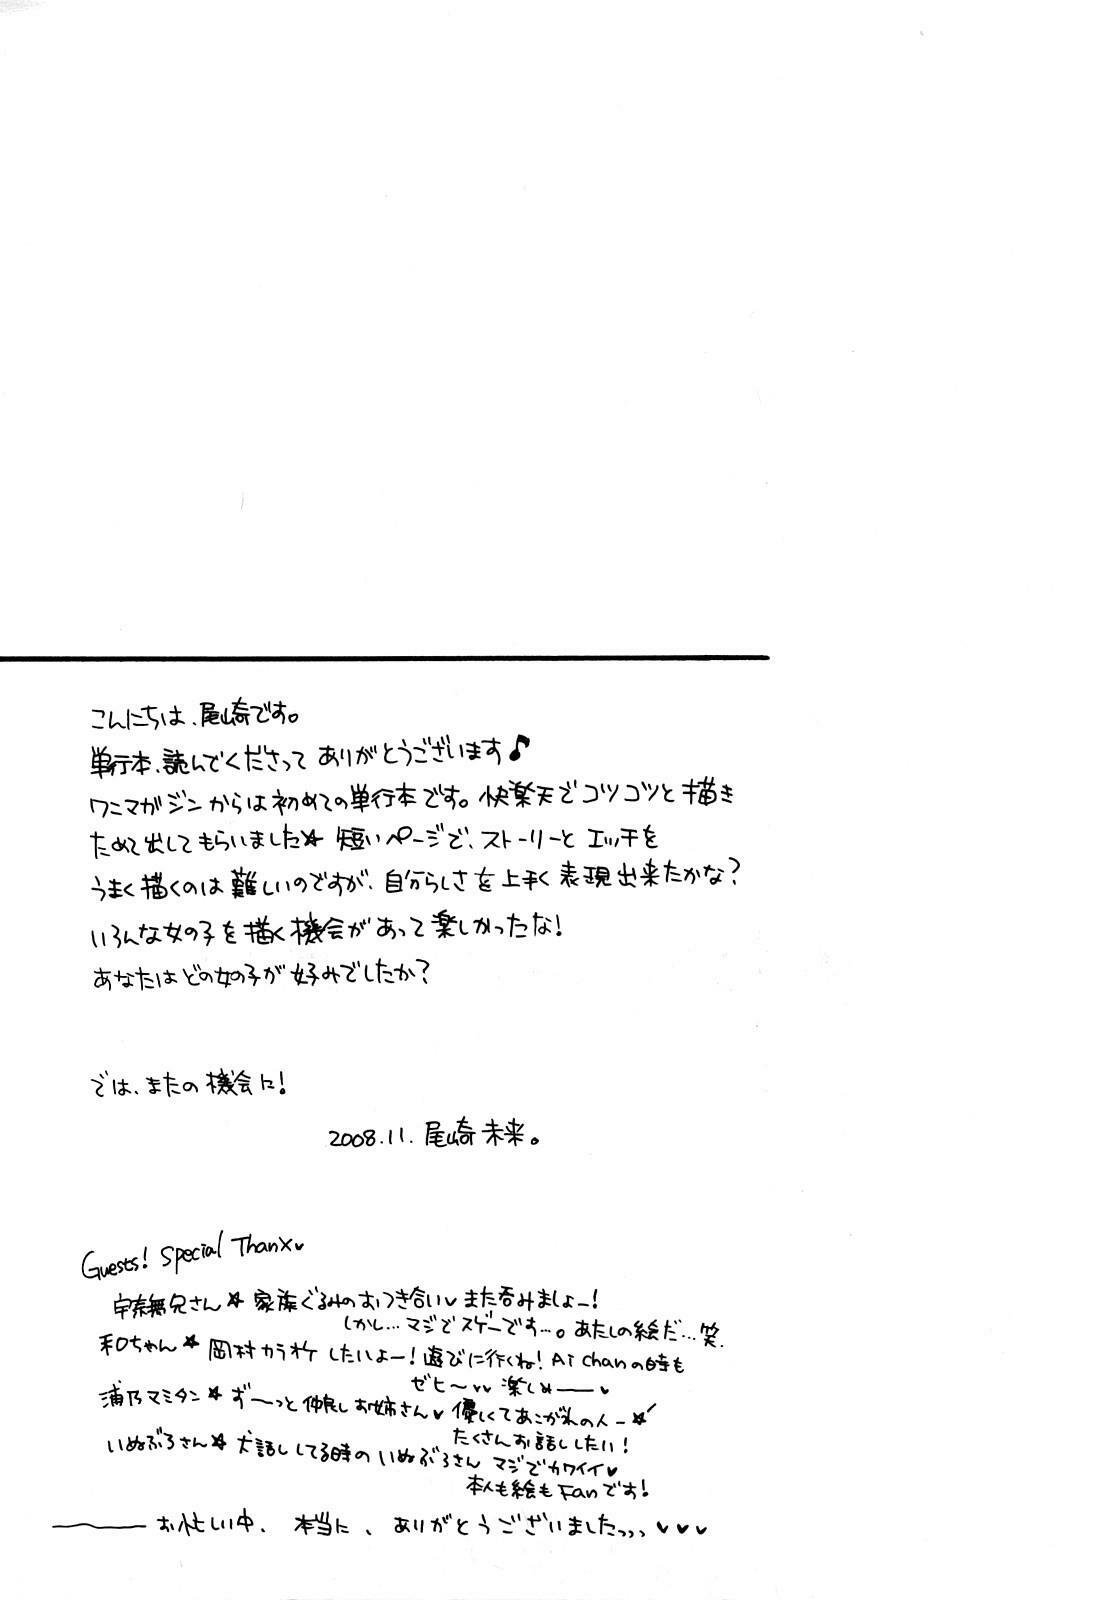 こんにちは、尾崎です。
単行本、読んでくださって ありがとうございます♪
ワニマガジンからは初めての単行本です。快楽天でコツコツと描き
ためて出してもらいました☆ 短いページで、ストーリーと エッチを
うまく描くのは難しいのですが、自分らしさを上手く表現出来たかな?
いろんな女の子を描く機会があって楽しかったな!
あなたはどの女の子が好みでしたか?
では、またの機会に!
2008.11. 尾崎未来。
Guests! Special Thanx♥
宇奈無兄さん☆ 家族ぐるみのおつき合い♥また呑みましょー!
しかし…マジでスゲーです…。あたしの絵だ…笑.
和ロちゃん☆ 岡村カラオケしたいよー!遊びに行くね!Ai chanの時も
ゼヒ〜♥♥ 楽しめ――♥
浦乃マミタン☆ ず〜っと仲良しお姉さん♥ 優しくてあこがれの人ー☆
たくさんお話ししたい!
いぬぶろさん☆ 犬話ししてる時の いぬぶろさん マジでカワイイ♥
本人も絵もFanです!
―――お忙しい中、本当に、ありがとうございましたっっっ♥♥♥